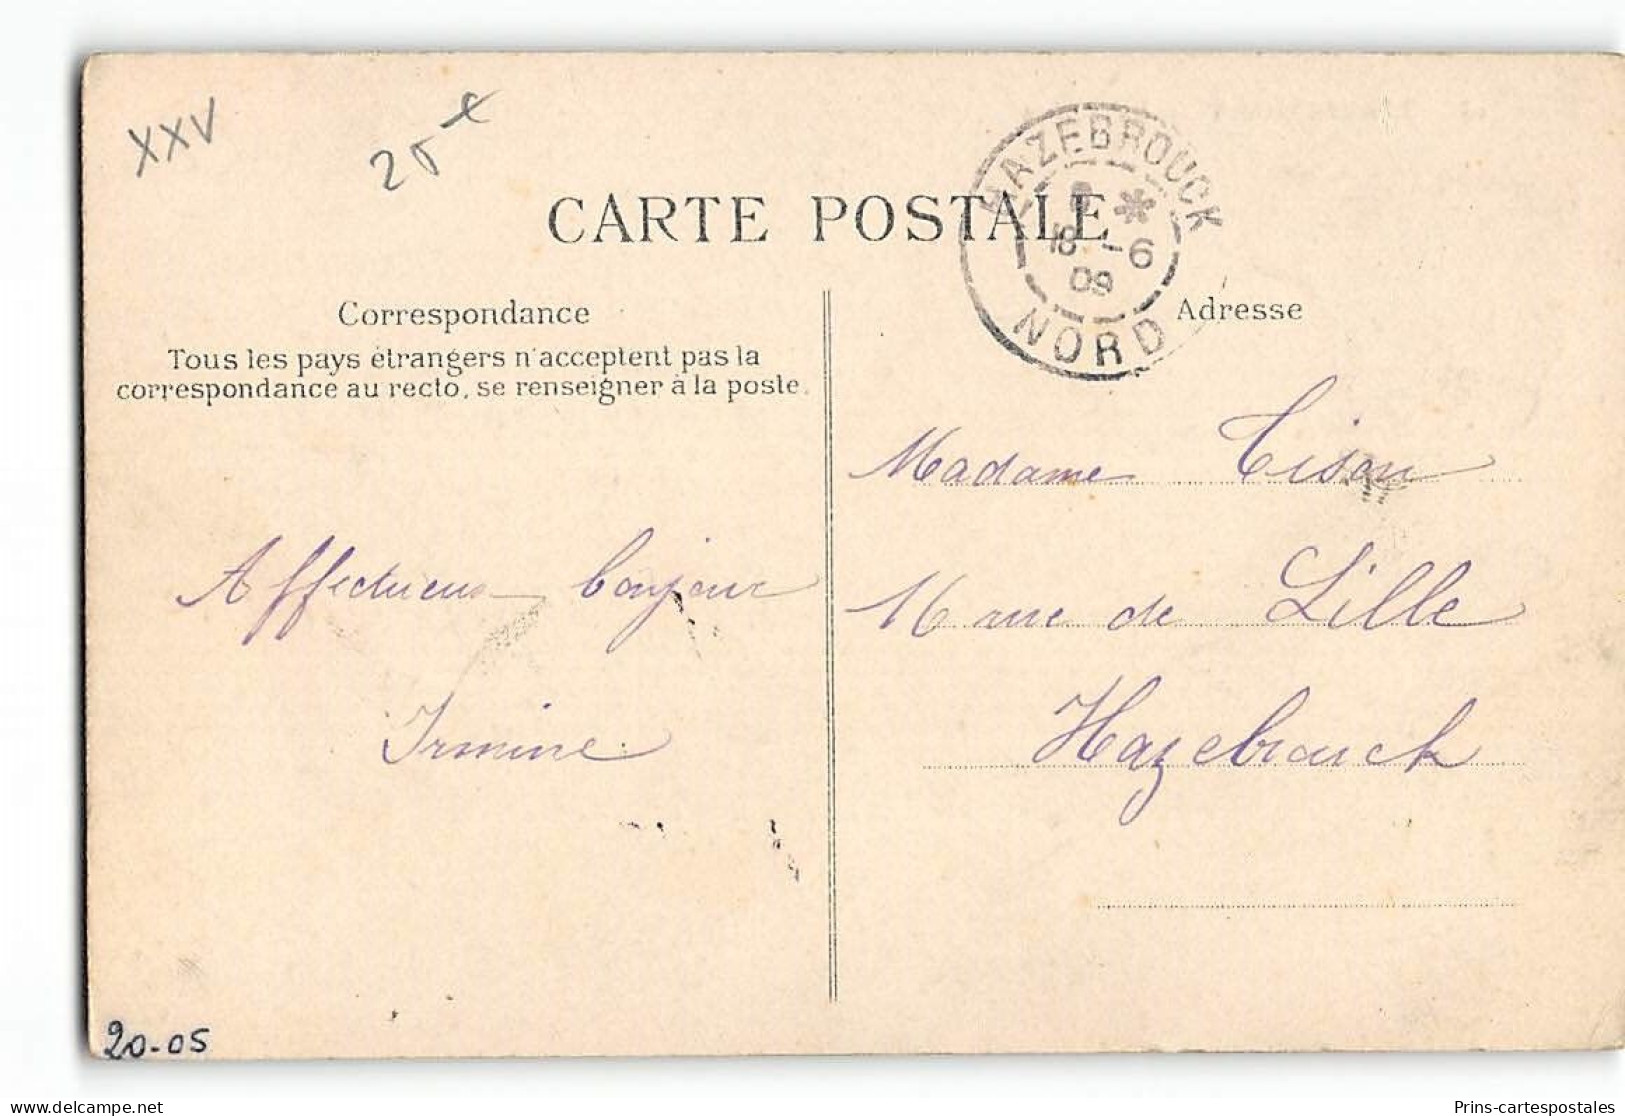 XXV
25 €
HAZEBROUCK
18 -6
09
NORD
CARTE POSTALE
Correspondance
Tous les pays étrangers n'acceptent pas la
correspondance au recto, se renseigner à la poste.
Adresse
Madame Tison
16 rue de Lille
Hazebrouck
Affectueux bonjour
Irmine
20-05
Prins-cartespostales